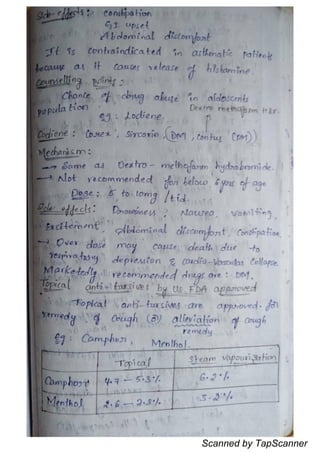 Side-effects: constipation
GI upset
Abdominal discomfort
It is contraindicated in asthmatic patients
because as it causes release of histamine
Counselling points:
Chance of drug abuse in adolescents
population
Eg: Codiene.
Codiene: Corex, Sircorin, (DM), contus (DM))
Mechanism:
→ Same as Dextro-methofarm hydrobromide.
→ Not recommended for below 6 years of age
Dose: 5 to 10mg /tid.
Side effects: Drowsiness, Nausea, vomiting,
Excitement, Abdominal discomfort, Constipation
→ Over dose may cause death due to
respiratory depression & cardio-vascular collapse.
Marketedly recommended drugs are: DM.
Topical anti-tussives by US FDA approved
Topical anti-tussives are approved for
remedy of cough (or) alleviation of cough
remedy
Eg: Camphor, Menthol.
Topical Steam vapourization
Camphor 4.7 - 5.3% 6.2%
Menthol 2.6 - 2.8% 3.2%
Scanned by TapScanner